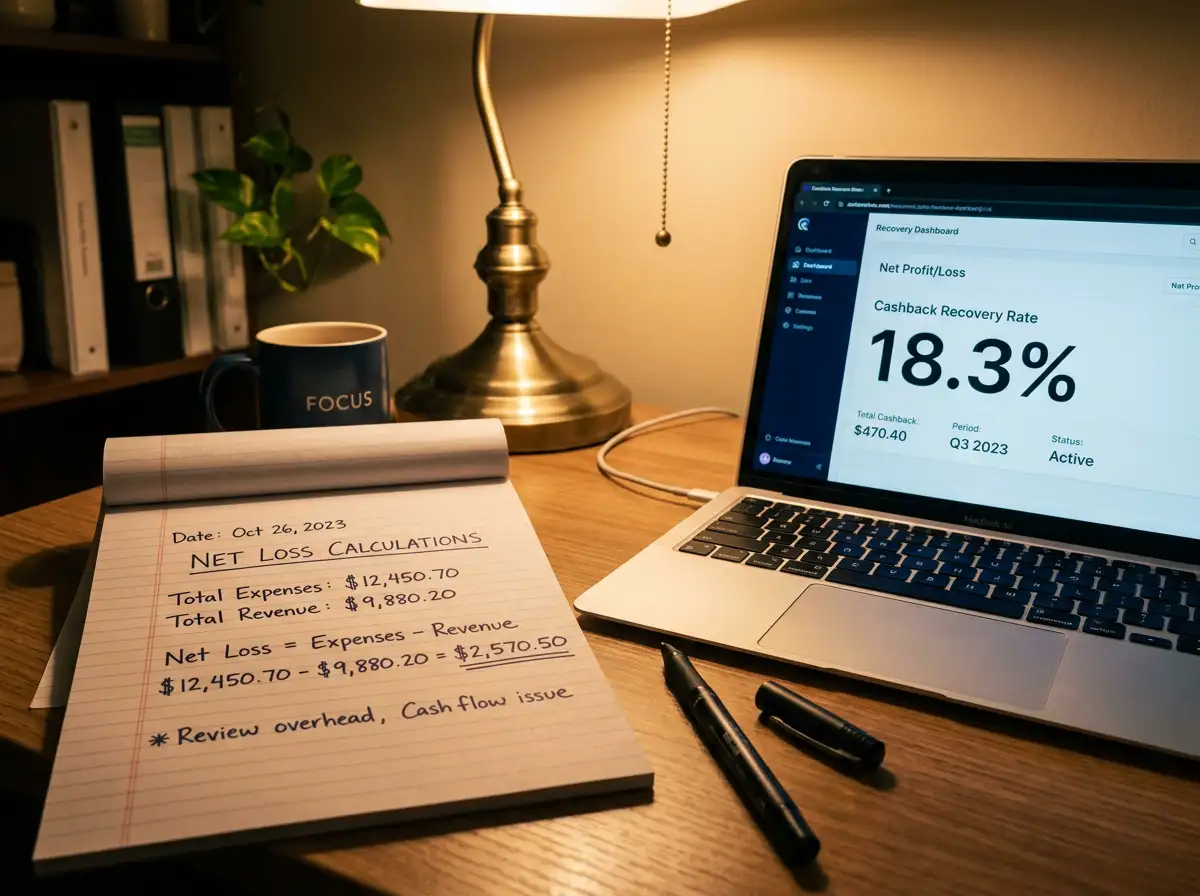 FOCUS
Date: Oct 26, 2023
NET LOSS CALCULATIONS
Total Expenses: $12,450.70
Total Revenue: $9,880.20
Net Loss = Expenses – Revenue
$12,450.70 – $9,880.20 = $2,570.50
* Review overhead, Cash flow issue
Recovery Dashboard
Net Profit/Loss
Cashback Recovery Rate
18.3%
Total Cashback:
$470.40
Period:
Q3 2023
Status:
Active
Dashboard
Dashboard
Settings
MacBook Air